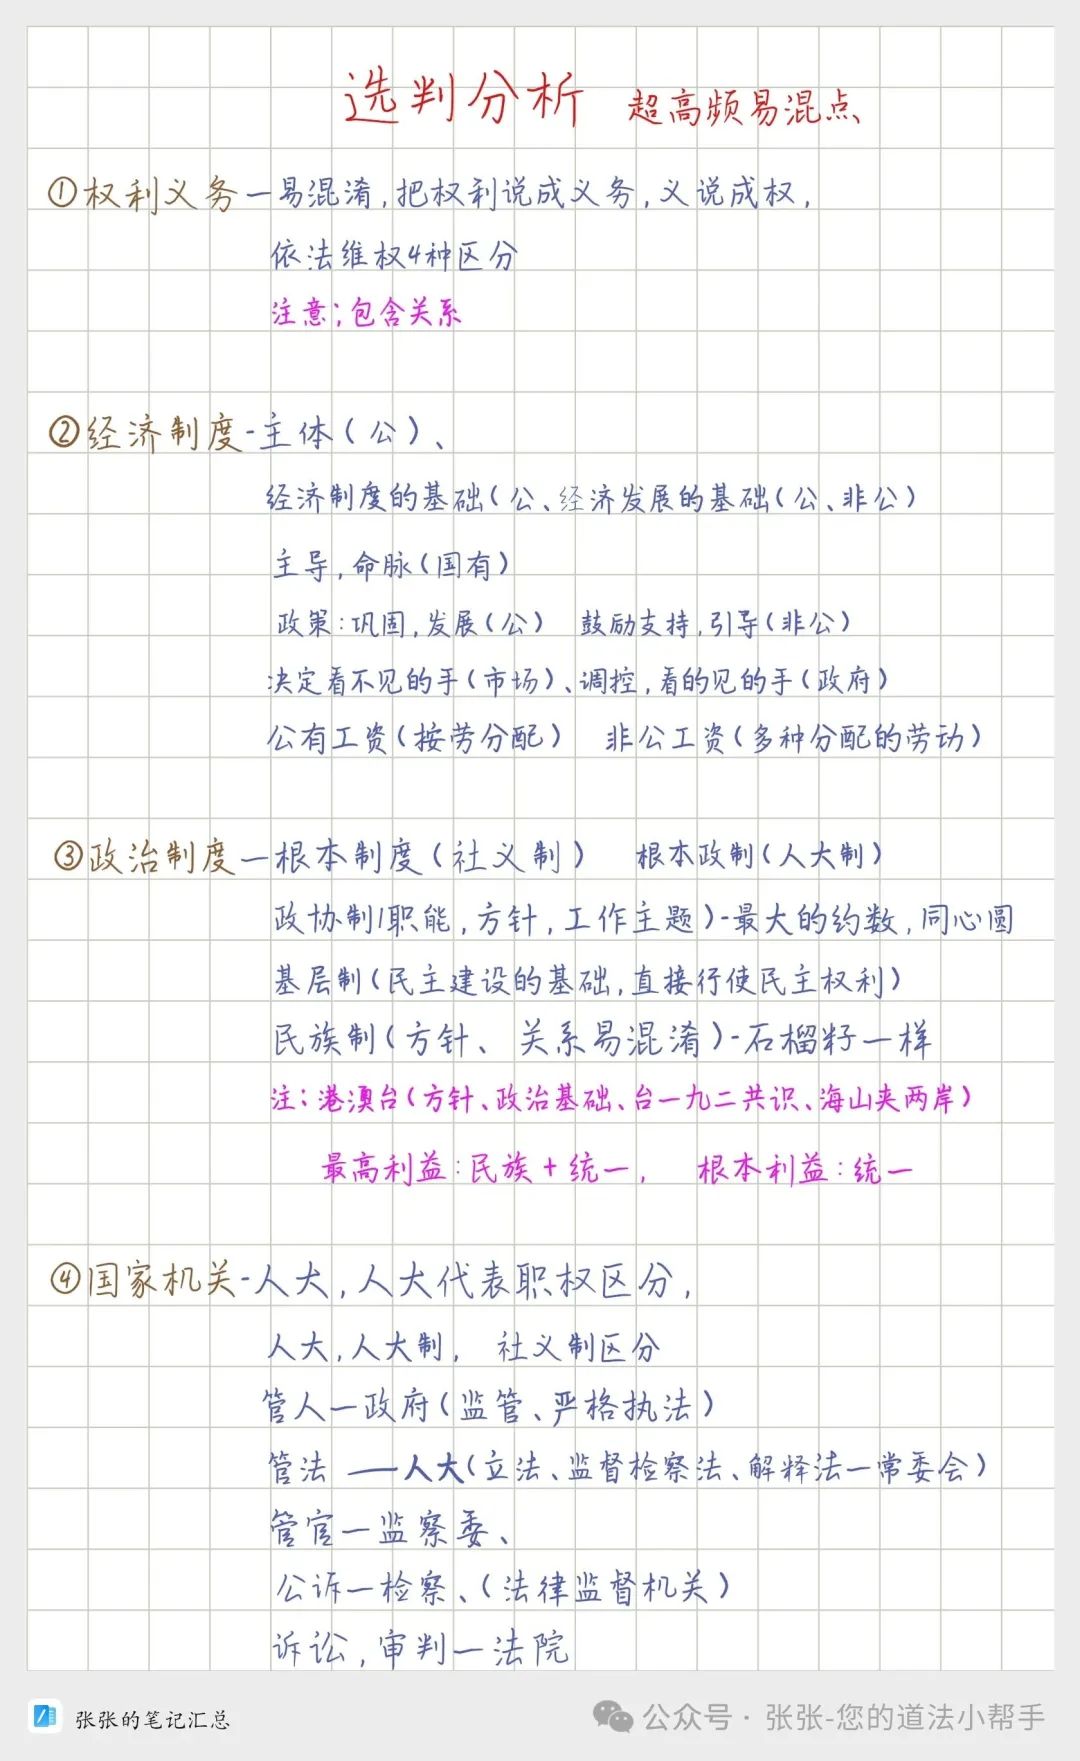 选判分析 超高频易混点
①权利义务－易混淆,把权利说成义务,义说成权,
依法维权4种区分
注意;包含关系
②经济制度-主体(公)、
经济制度的基础(公、经济发展的基础(公、非公)
主导,命脉(国有)
政策:巩固,发展(公) 鼓励支持,引导(非公)
决定看不见的手(市场)、调控,看的见的手(政府)
公有工资(按劳分配) 非公工资(多种分配的劳动)
③政治制度－根本制度(社义制) 根本政制(人大制)
政协制(职能,方针,工作主题)-最大的约数,同心圆
基层制(民主建设的基础,直接行使民主权利)
民族制(方针、关系易混淆)-石榴籽一样
注:港澳台(方针、政治基础、台一九二共识、海山夹两岸)
最高利益:民族+统一, 根本利益:统一
④国家机关-人大,人大代表职权区分,
人大,人大制, 社义制区分
管人－政府(监管、严格执法)
管法 ——人大(立法、监督检察法、解释法－常委会)
管官－监察委、
公诉－检察、(法律监督机关)
诉讼,审判－法院
张张的笔记汇总
公众号·张张-您的道法小帮手